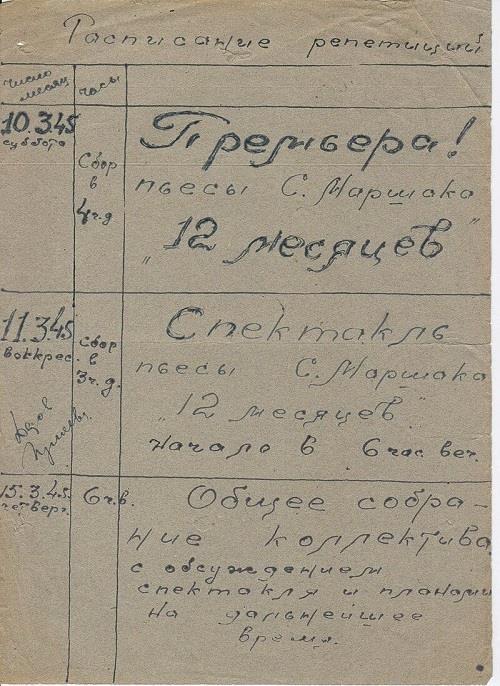 Расписание репетиций
число месяц
часы
10.3.45
суббота
Сбор
в
4 ч. д
Премьера!
пьесы С. Маршака
"12 месяцев"
11.3.45
воскрес.
Сбор
в
3 ч. д.
Спектакль
пьесы С. Маршака
"12 месяцев".
Начало в 6 час. веч.
15.3.45.
четверг.
6 ч. в.
Общее собра-
ние коллектива
с обсуждением
спектакля и планами
на дальнейшее
время.